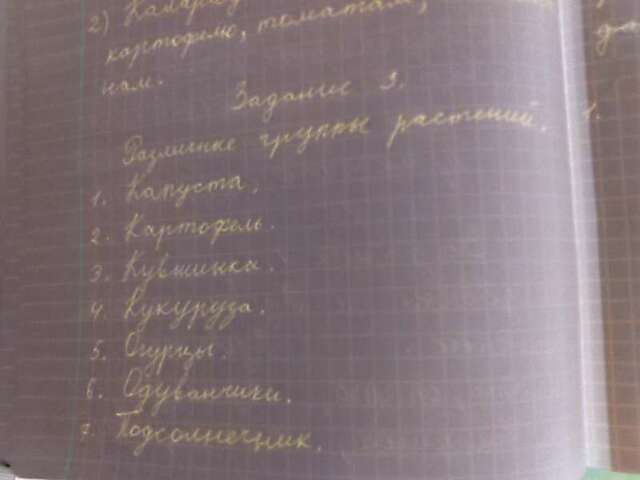 2)
картофелю, томатам,
нам.
Задание 3.
Различные группы растений.
1. Капуста.
2. Картофель.
3. Кувшинка.
4. Кукуруза.
5. Огурцы.
6. Одуванчики.
7. Подсолнечник.
1.